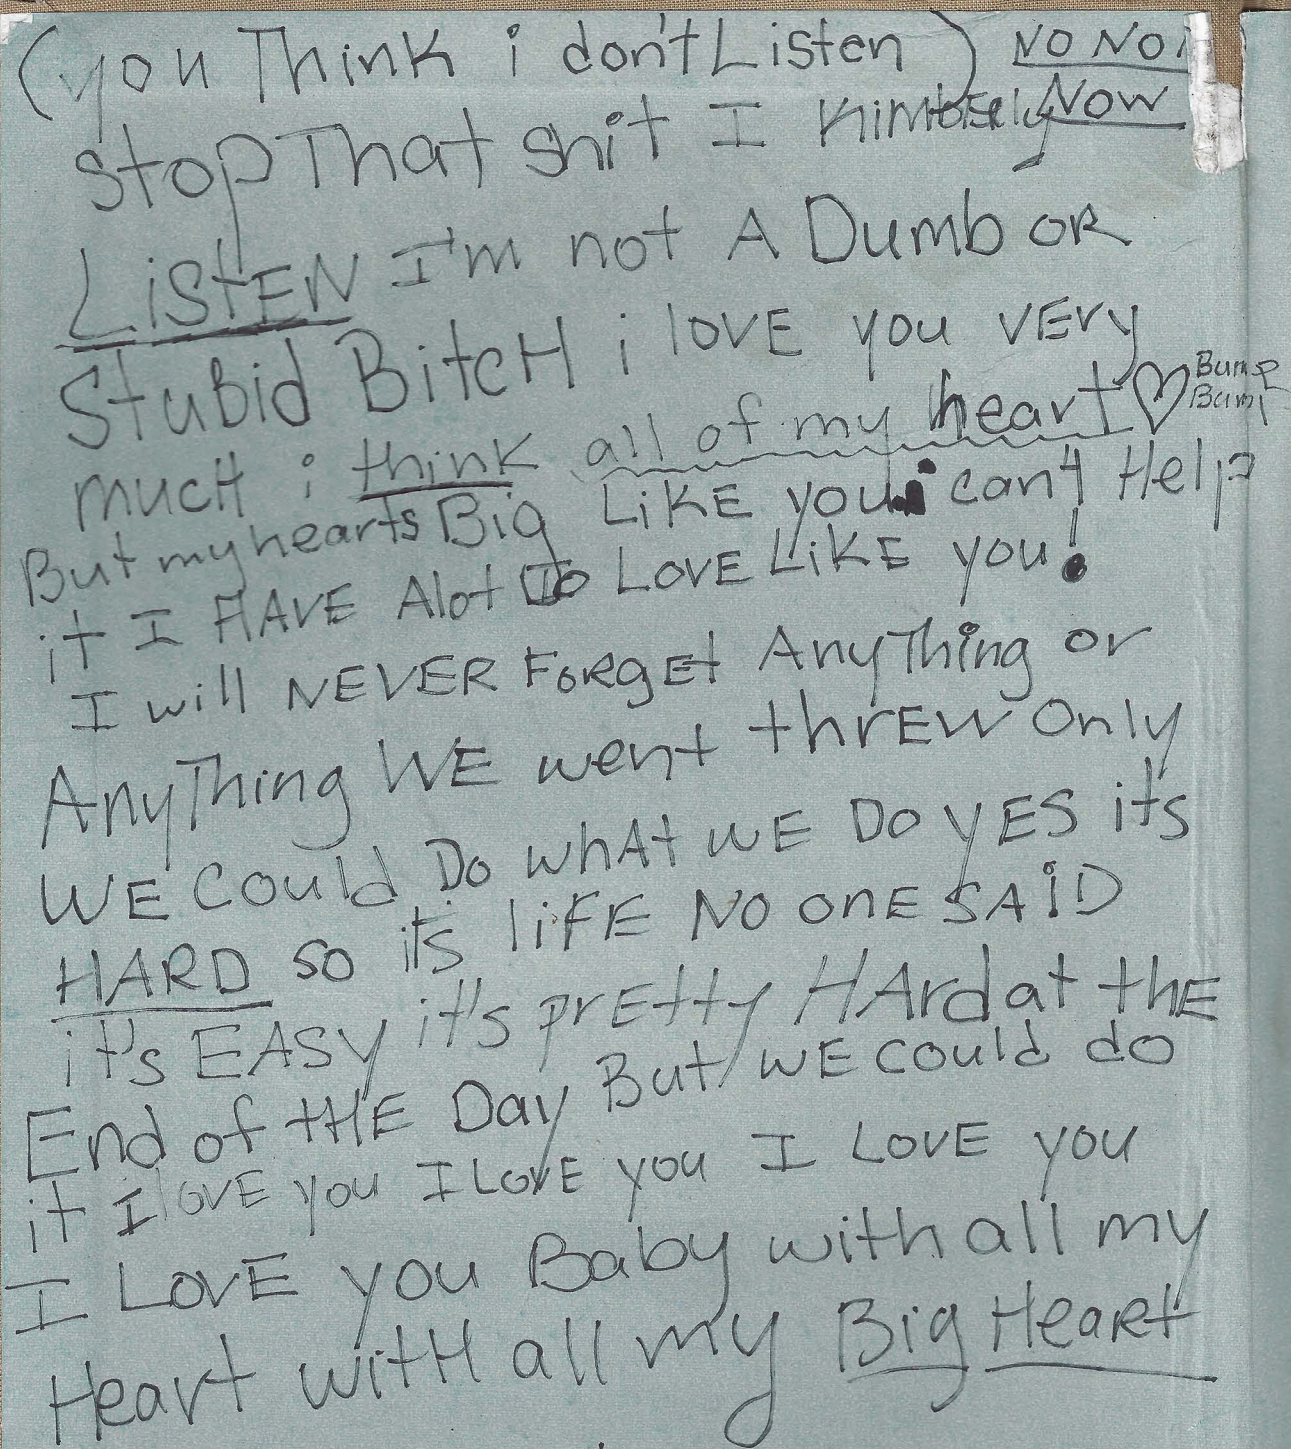 (you Think i don't Listen) NO NO
Stop That shit I Kimberly NOW
LiStEN I'm not A Dumb OR
StuBid BitcH i lOVE you VEry
much i think all of my heart ♡ Bump Bump
But my hearts Big LiKE you i can't Help
it I HAVE Alot TO LOVE LiKE you!
I will NEVER FoRgEt AnyThing or
AnyThing WE went thrEW Only
WE Could Do whAt WE DO YES it's
HARD so it's liFE NO onE SAiD
it's EASy it's prEtty HArd at thE
End of tHE Day But WE Could do
it I lOVE you I LOVE you I LOVE you
I LOVE you Baby with all my
Heart witH all my Big HeaRt